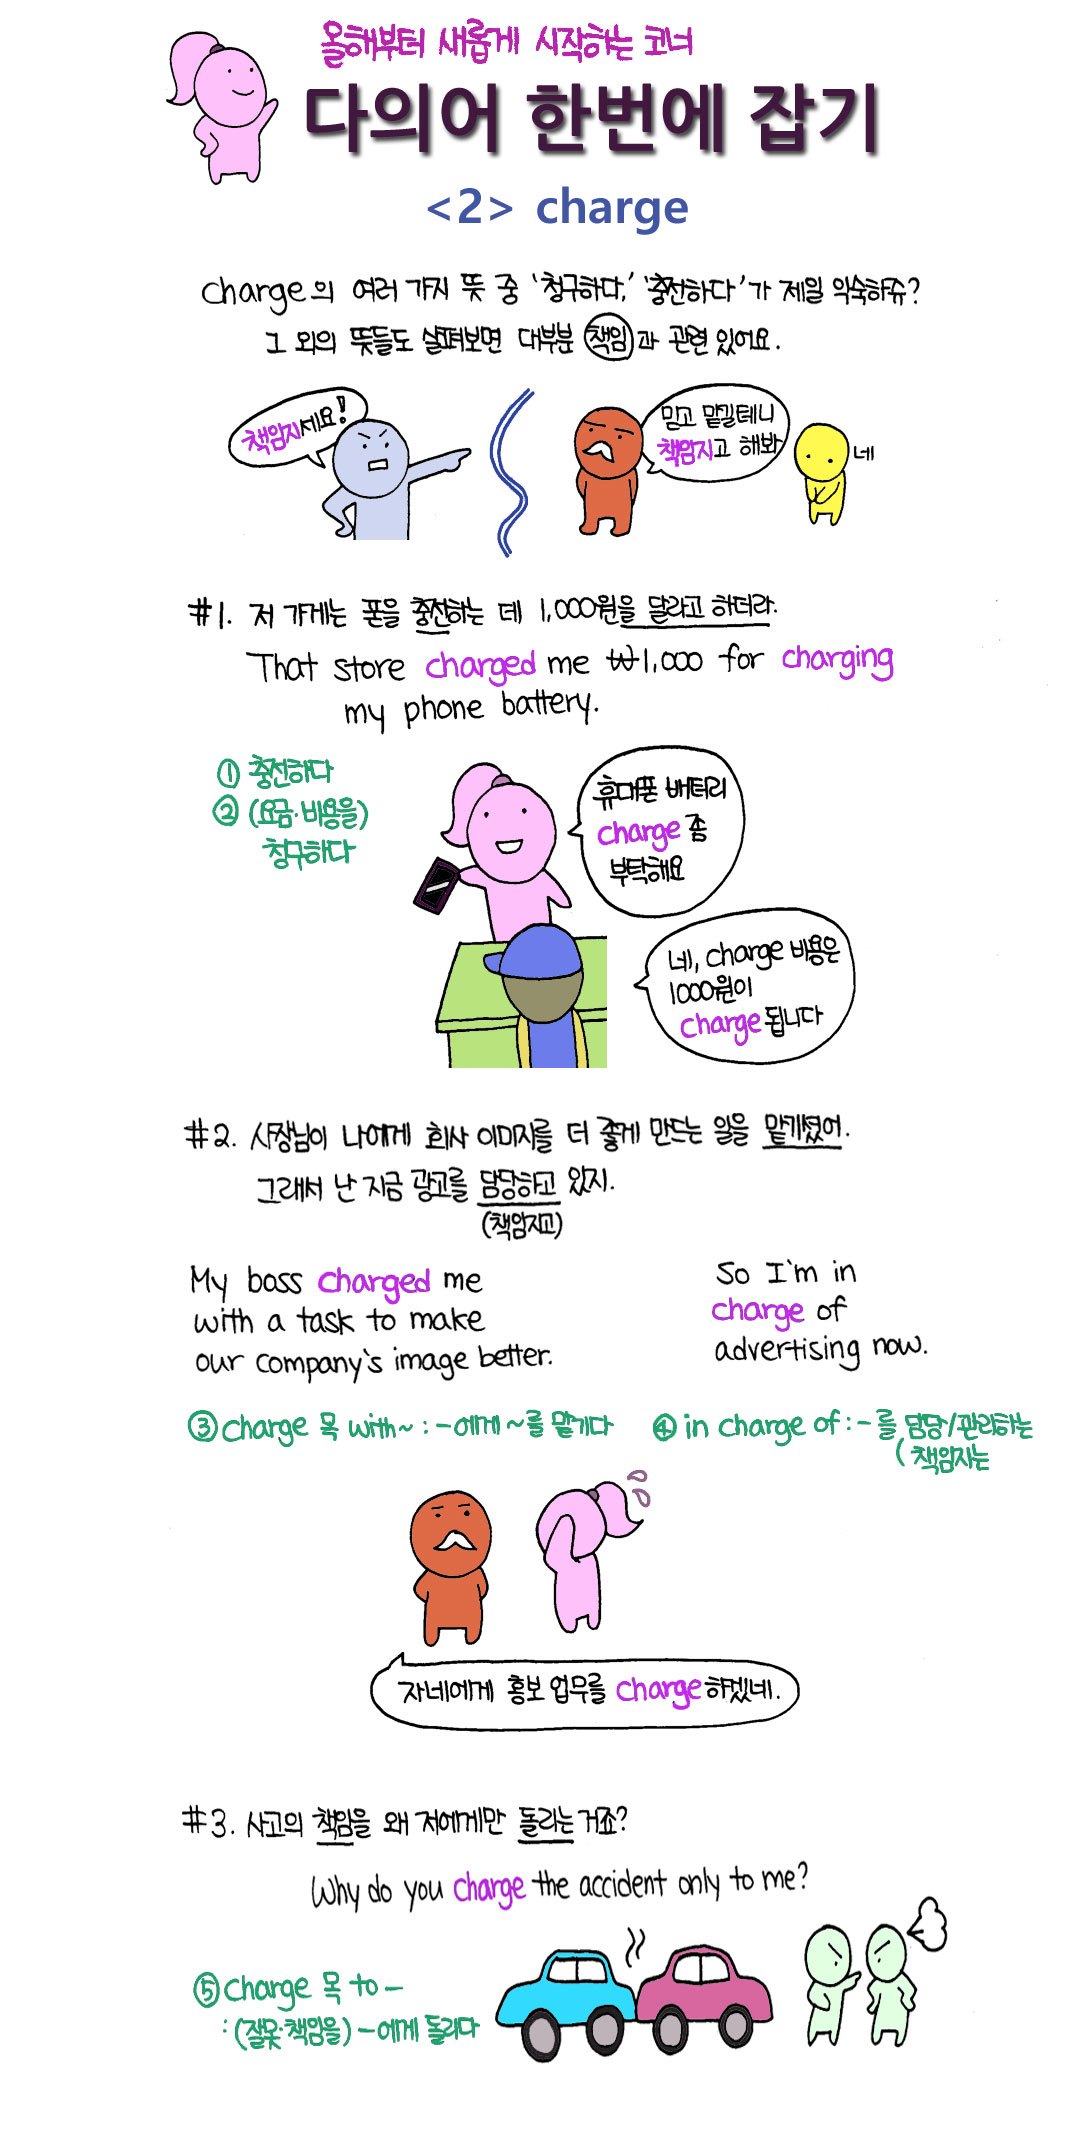 올해부터 새롭게 시작하는 코너
다의어 한번에 잡기
<2> charge
charge의 여러 가지 뜻 중 '청구하다,' '충전하다'가 제일 익숙하쥬?
그 외의 뜻들도 살펴보면 대부분 책임과 관련 있어요.
책임지세요!
믿고 맡길테니
책임지고 해봐
네
#1. 저 가게는 폰을 충전하는 데 1,000원을 달라고 하더라.
That store charged me ₩1,000 for charging
my phone battery.
① 충전하다
② (요금·비용을)
청구하다
휴대폰 배터리
charge 좀
부탁해요
네, charge 비용은
1000원이
charge 됩니다
#2. 사장님이 나에게 회사 이미지를 더 좋게 만드는 일을 맡기셨어.
그래서 난 지금 광고를 담당하고 있지.
(책임지고)
My boss charged me
with a task to make
our company's image better.
So I'm in
charge of
advertising now.
③ charge 목 with~ : -에게 ~를 맡기다
④ in charge of : -를 담당/관리하는
(책임지는
자네에게 홍보 업무를 charge 하겠네.
#3. 사고의 책임을 왜 저에게만 돌리는거죠?
Why do you charge the accident only to me?
⑤ charge 목 to -
: (잘못·책임을) -에게 돌리다